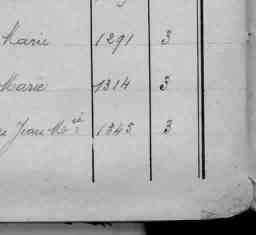 Marie 1291 3
Marie 1314 3
Jean Mie 1345 3